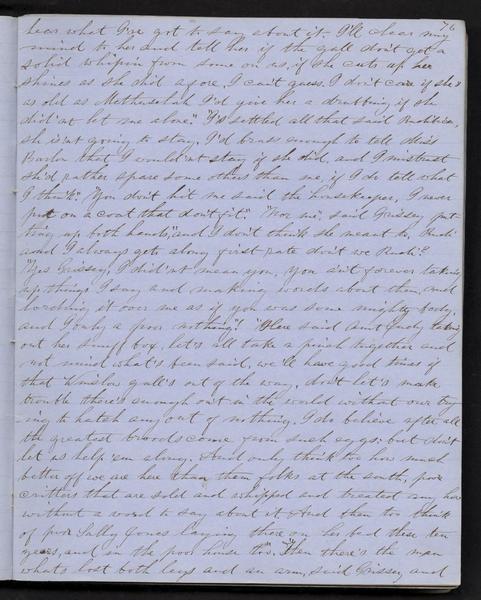 76
hear what I've got to say about it. I'll clear my
mind to her and tell her if the gall don't get a
solid whipin from some on us, if she cuts up her
shines as she did afore, I can't guess. I don't care if she's
as old as Methuselah I'd give her a drubbing if she
did'nt let me alone." "I've settled all that said
she is'nt going to stay, I'd brass enough to tell Miss
Barlow that I would'nt stay if she did, and I mistrust
she'd rather spare some others than me, if I do tell what
I think." "You don't hit me said the housekeeper, I never
put on a coat that don't fit." "Nor me", said Grissey put
ting up both hands, "and I don't think she meant to, Ruth
and I always gets along first rate don't we Ruth?"
"Yes Grissey, I did'nt mean you, You ain't forever taking
up things I say and making words about them, and
lording it over me as if you was some mighty body,
and I only a poor nothing." "Here said Aunt Judy taking
out her snuff box, let's all take a pinch together and
not mind what's been said, we'll have good times if
that Winslow gall's out of the way, don't let's make
trouble there's enough on't in the world without our try
-ing to hatch any out of nothing. I do believe after all
the greatest broods come from such eggs; but don't
let us help 'em along. And only think too how much
better off we are here than them folks at the south, poor
critters that are sold and whipped and treated any how
without a word to say about it. And then too think
of poor Sally Jones laying there on her bed these ten
years, and in the poor house too. "Then there's the man
what's lost both legs and an arm, said Grissey and